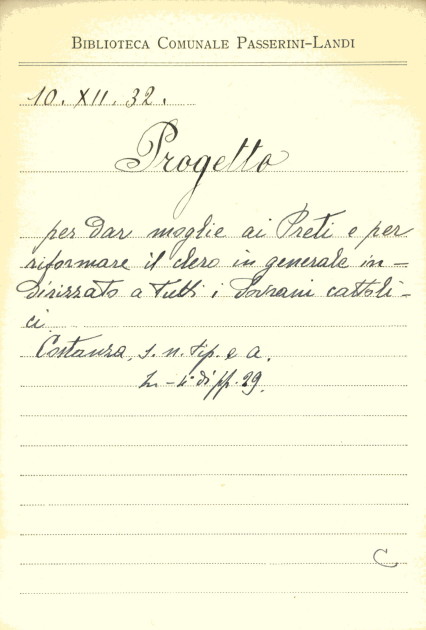 BIBLIOTECA COMUNALE PASSERINI-LANDI
10. XII. 32.
Progetto
per dar moglie ai Preti e per
riformare il clero in generale in-
dirizzato a tutti i Sovrani cattoli-
ci
Costanza, s. n. tip. e a.
in - 4° di pp. 29.
C